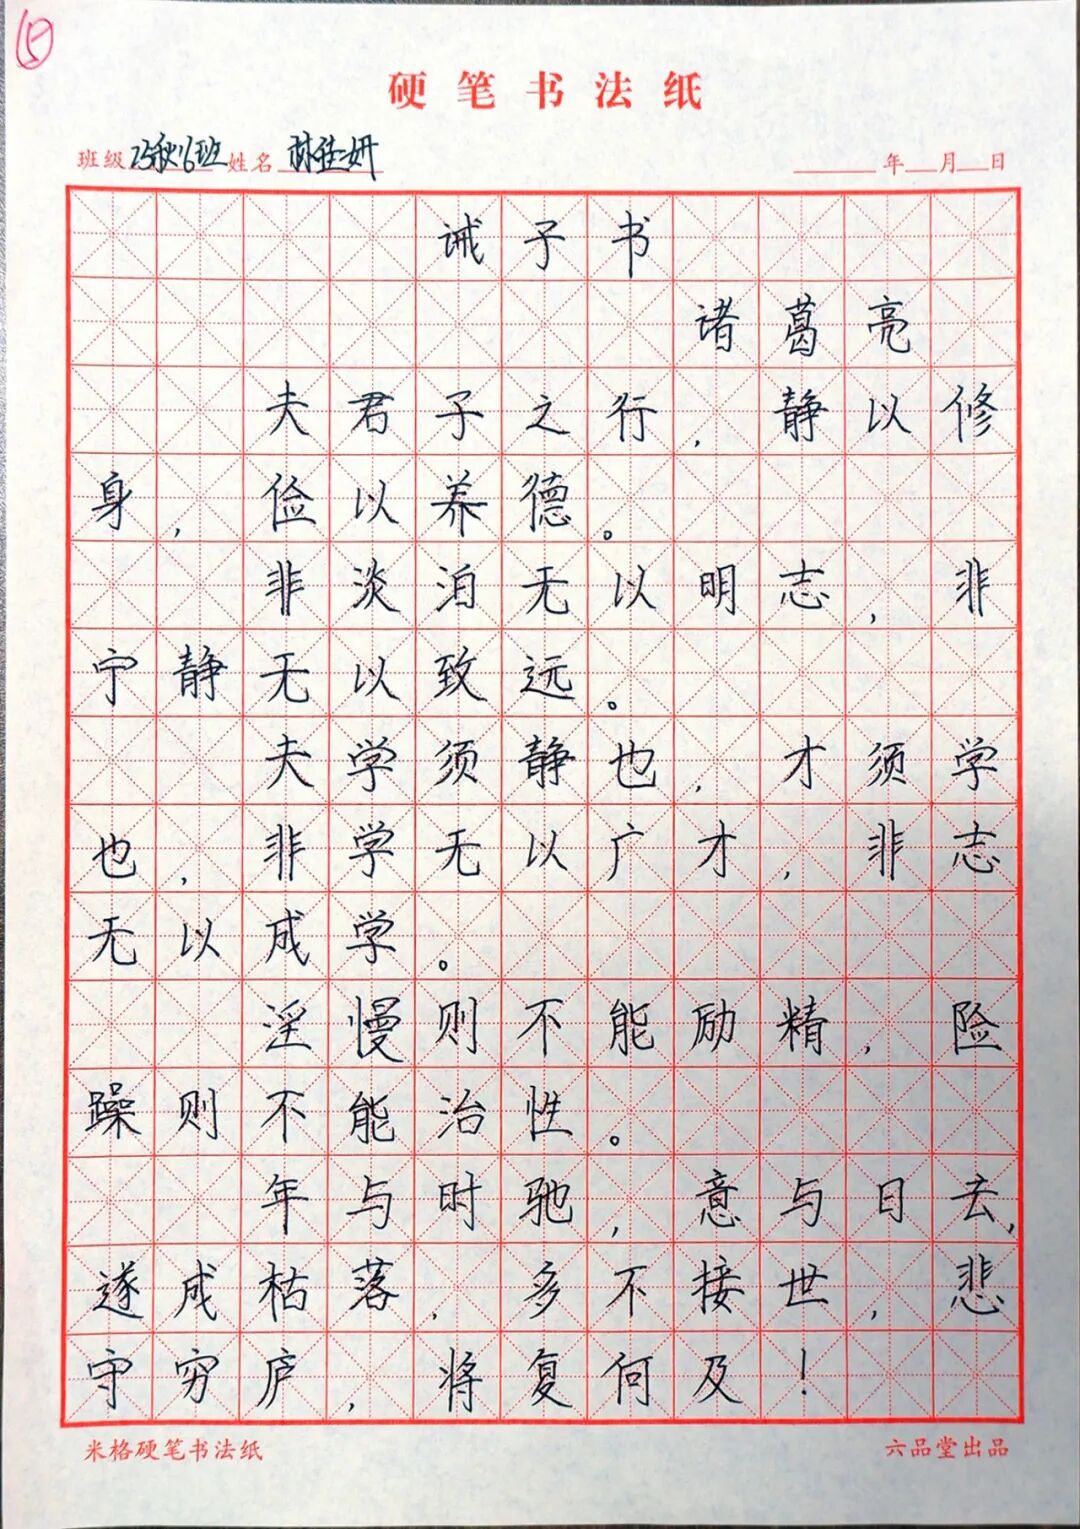 15
硬笔书法纸
班级 23秋16班 姓名 林佳妍 年 月 日
诫子书
诸葛亮
夫君子之行,静以修
身,俭以养德。
非淡泊无以明志,非
宁静无以致远。
夫学须静也,才须学
也,非学无以广才,非志
无以成学。
淫慢则不能励精,险
躁则不能治性。
年与时驰,意与日去,
遂成枯落,多不接世,悲
守穷庐,将复何及!
米格硬笔书法纸 六品堂出品